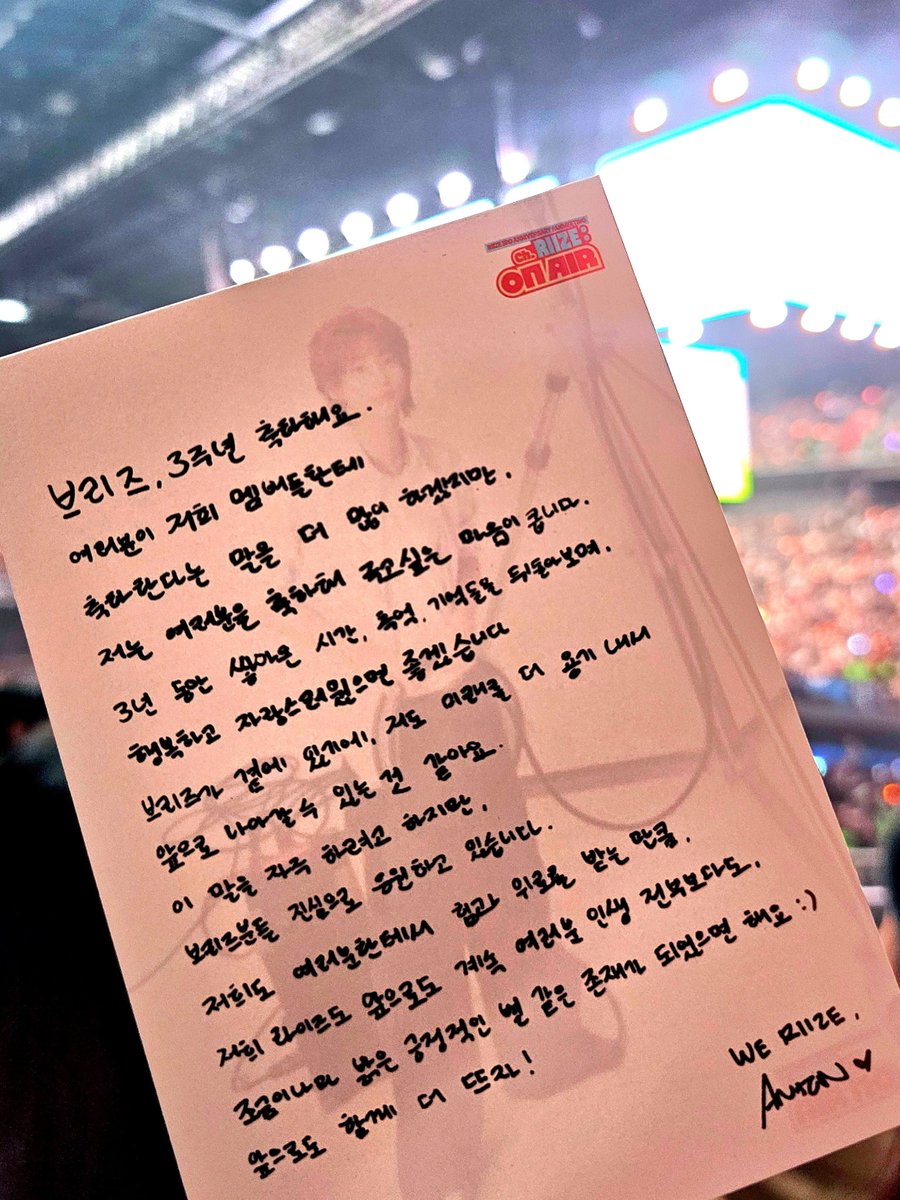 Ch. RIIZE:
ON AIR
브리즈, 3주년 축하해요.
여러분이 저희 멤버들한테
축하한다는 말을 더 많이 하겠지만,
저는 여러분을 축하해 주고싶은 마음이 큽니다.
3년 동안 쌓아온 시간, 추억, 기억들을 뒤돌아보며,
행복하고 자랑스러웠으면 좋겠습니다
브리즈가 곁에 있기에, 저도 미래를 더 용기 내서
앞으로 나아갈 수 있는 것 같아요.
이 말을 자주 하려고 하지만,
브리즈분들 진심으로 응원하고 있습니다.
저희도 여러분한테서 힘과 위로를 받는 만큼,
저희 라이즈도 앞으로도 계속 여러분 인생 전부보다도,
조금이나마 밝은 긍정적인 별 같은 존재가 되었으면 해요 :)
앞으로도 함께 더 뜨자!
WE RIIZE,
ANTON ♥